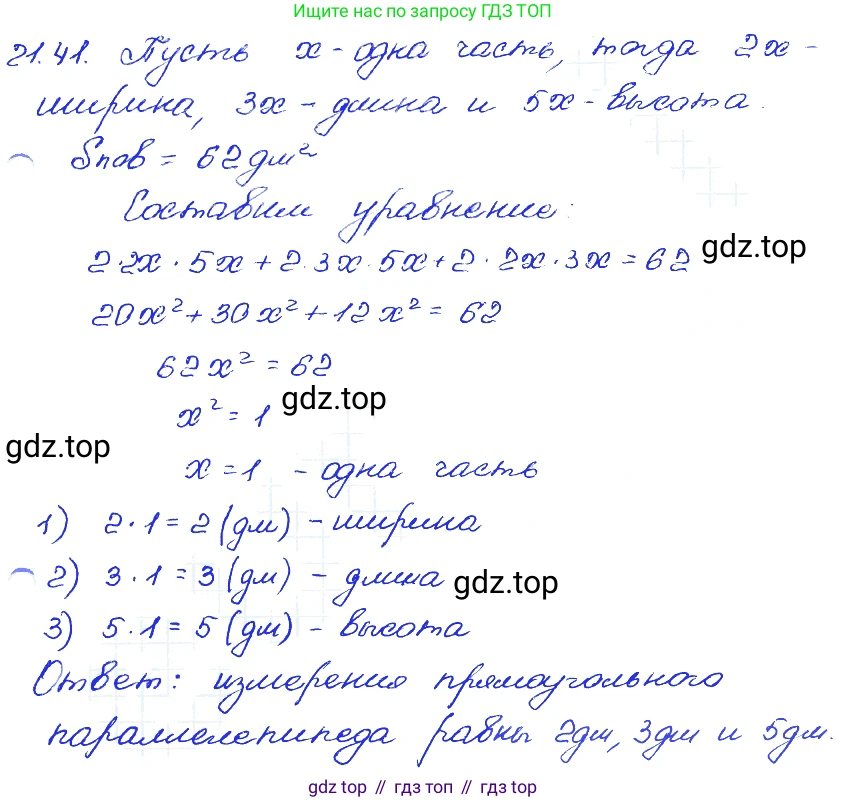 Ищите нас по запросу ГДЗ ТОП
21.41. Пусть x - одна часть, тогда 2x -
ширина, 3x - длина и 5x - высота.
Sпов = 62 дм²
Составим уравнение:
2·2x·5x+2·3x·5x+2·2x·3x=62
gdz.top
20x²+30x²+12x²=62
62x²=62
x²=1
gdz.top
gdz.top
x=1 - одна часть
1) 2·1=2(дм) - ширина
2) 3·1=3(дм) - длина
gdz.top
3) 5·1=5(дм) - высота
Ответ: измерения прямоугольного
параллелепипеда равны 2дм, 3дм и 5дм.
gdz top // гдз топ // gdz top